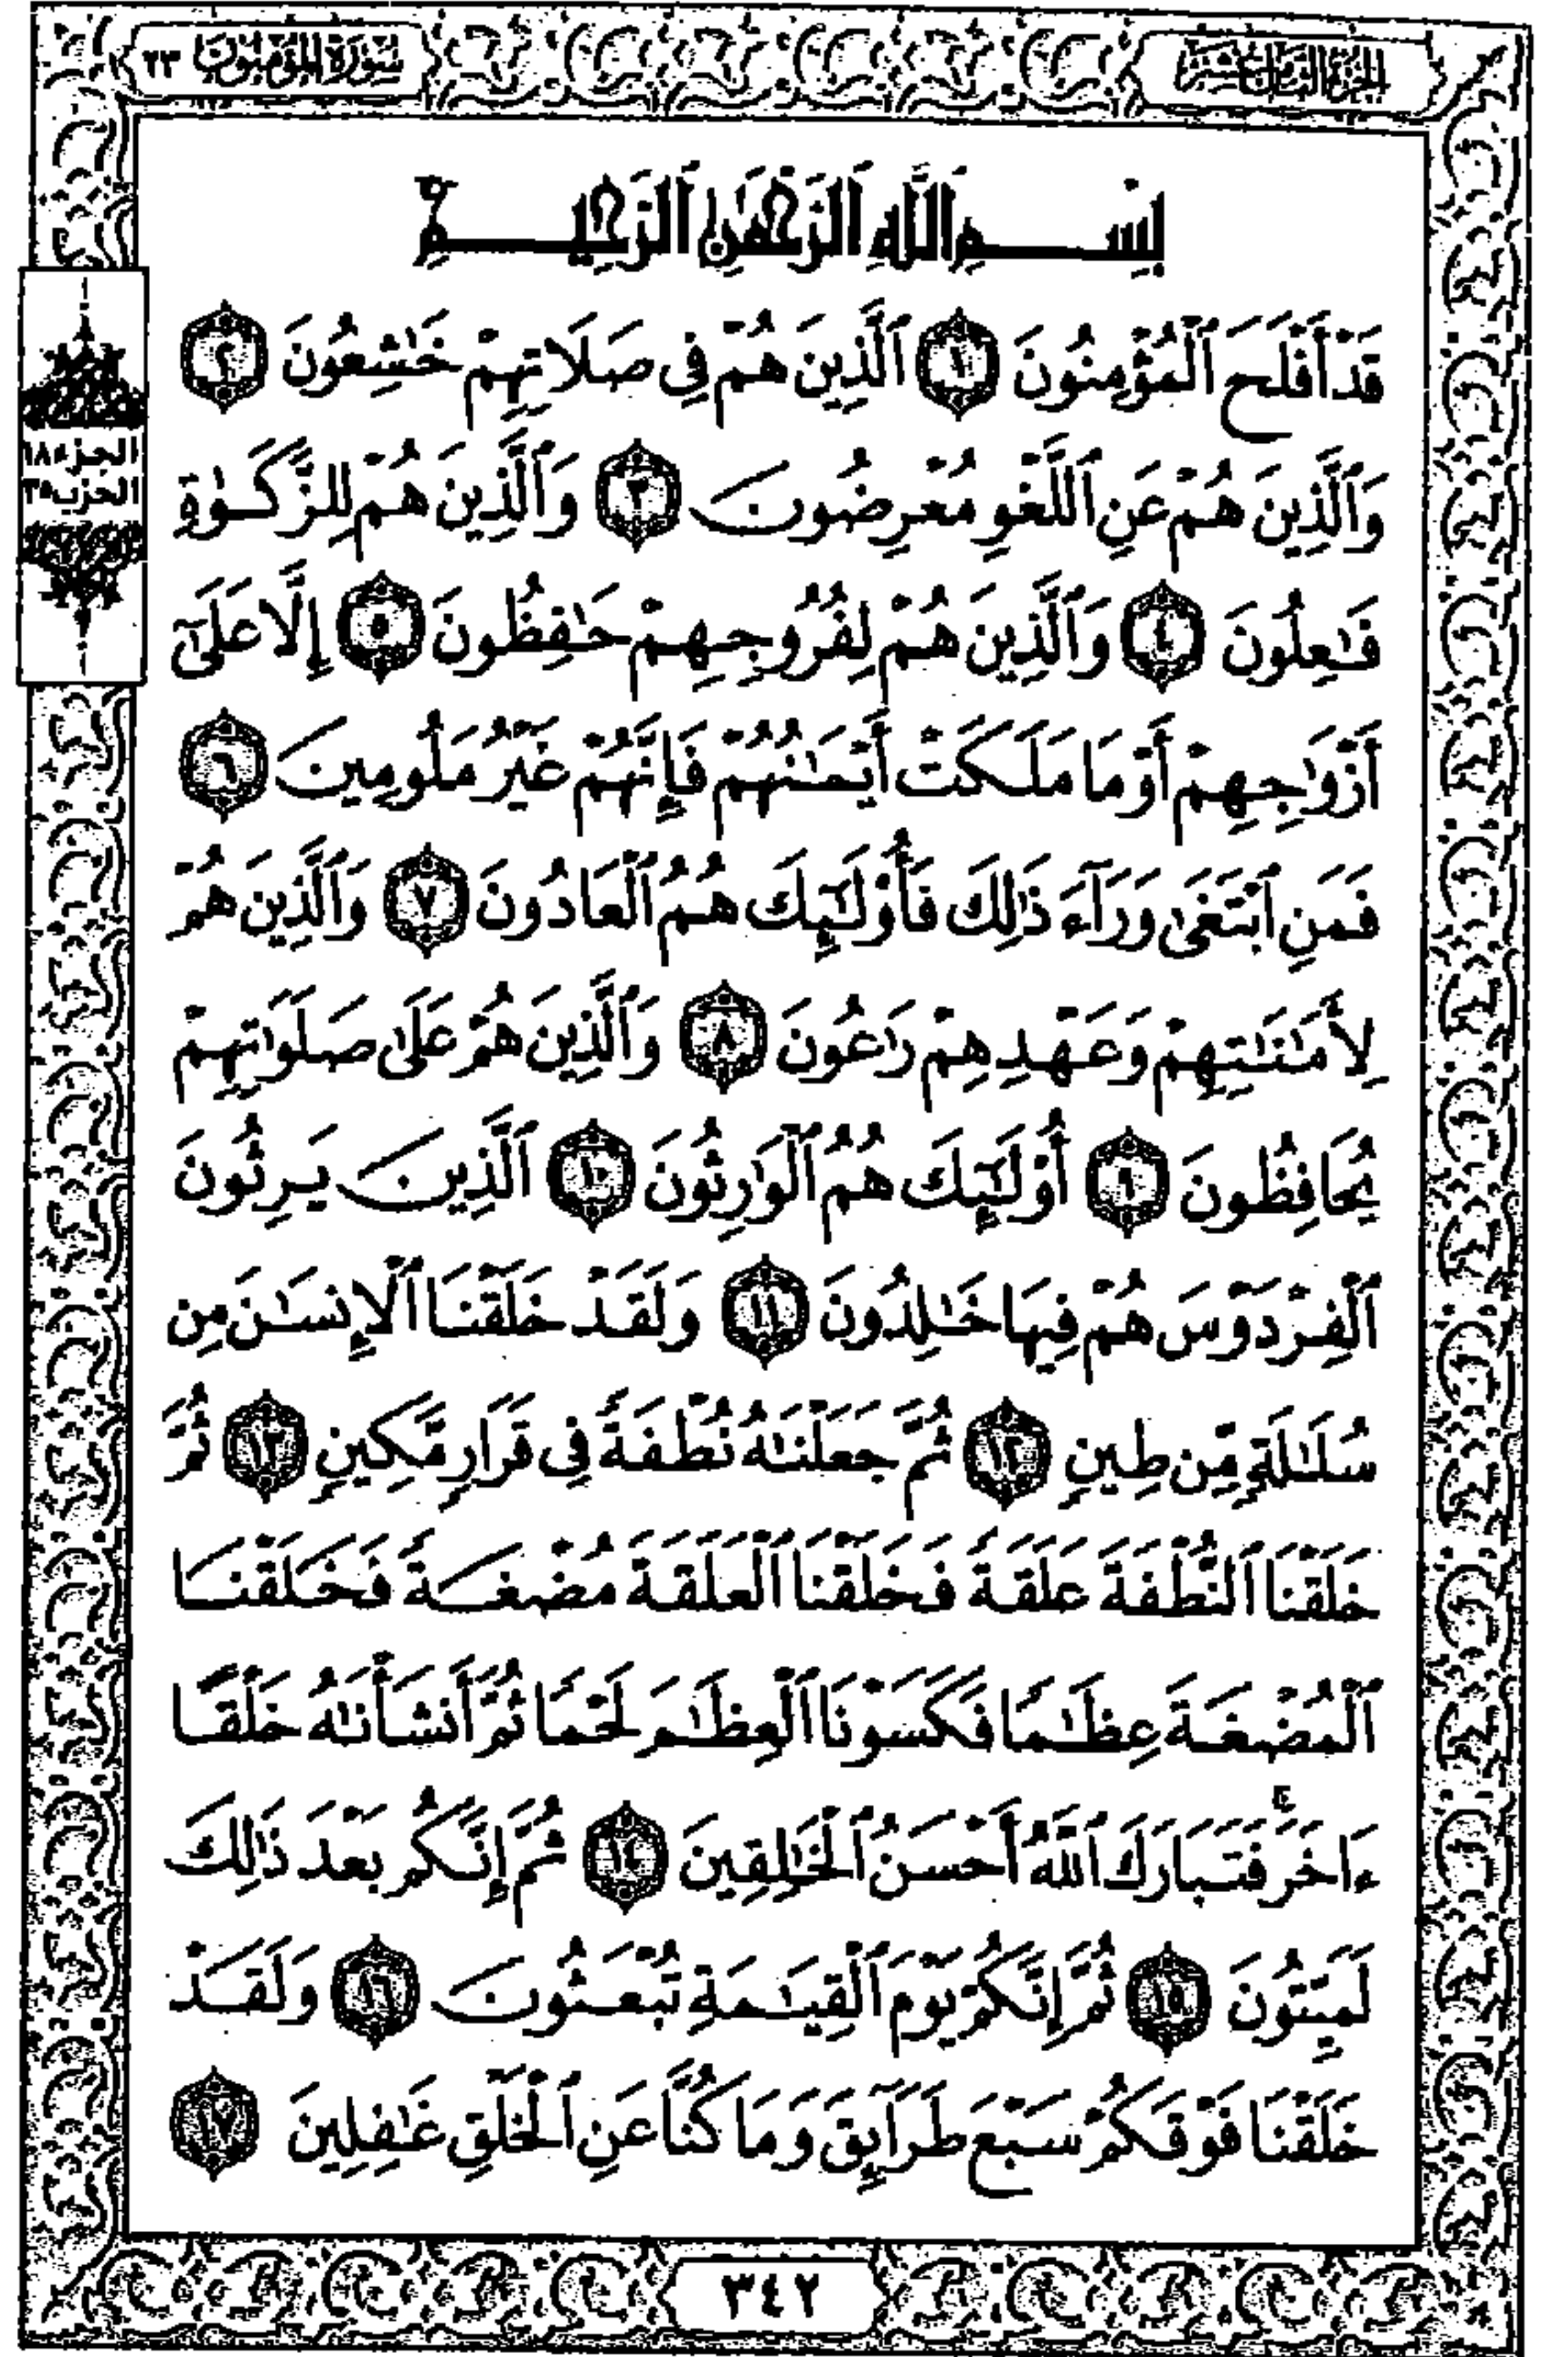 الجزء الثامن عشر
سورة المؤمنون ٢٣
بِسْمِ ٱللَّهِ ٱلرَّحْمَٰنِ ٱلرَّحِيمِ
قَدْ أَفْلَحَ ٱلْمُؤْمِنُونَ ١ ٱلَّذِينَ هُمْ فِى صَلَاتِهِمْ خَٰشِعُونَ ٢
وَٱلَّذِينَ هُمْ عَنِ ٱللَّغْوِ مُعْرِضُونَ ٣ وَٱلَّذِينَ هُمْ لِلزَّكَوٰةِ
فَٰعِلُونَ ٤ وَٱلَّذِينَ هُمْ لِفُرُوجِهِمْ حَٰفِظُونَ ٥ إِلَّا عَلَىٰٓ
أَزْوَٰجِهِمْ أَوْ مَا مَلَكَتْ أَيْمَٰنُهُمْ فَإِنَّهُمْ غَيْرُ مَلُومِينَ ٦
فَمَنِ ٱبْتَغَىٰ وَرَآءَ ذَٰلِكَ فَأُو۟لَٰٓئِكَ هُمُ ٱلْعَادُونَ ٧ وَٱلَّذِينَ هُمْ
لِأَمَٰنَٰتِهِمْ وَعَهْدِهِمْ رَٰعُونَ ٨ وَٱلَّذِينَ هُمْ عَلَىٰ صَلَوَٰتِهِمْ
يُحَافِظُونَ ٩ أُو۟لَٰٓئِكَ هُمُ ٱلْوَٰرِثُونَ ١٠ ٱلَّذِينَ يَرِثُونَ
ٱلْفِرْدَوْسَ هُمْ فِيهَا خَٰلِدُونَ ١١ وَلَقَدْ خَلَقْنَا ٱلْإِنسَٰنَ مِن
سُلَٰلَةٍ مِّن طِينٍ ١٢ ثُمَّ جَعَلْنَٰهُ نُطْفَةً فِى قَرَارٍ مَّكِينٍ ١٣ ثُمَّ
خَلَقْنَا ٱلنُّطْفَةَ عَلَقَةً فَخَلَقْنَا ٱلْعَلَقَةَ مُضْغَةً فَخَلَقْنَا
ٱلْمُضْغَةَ عِظَٰمًا فَكَسَوْنَا ٱلْعِظَٰمَ لَحْمًا ثُمَّ أَنشَأْنَٰهُ خَلْقًا
ءَاخَرَ ۚ فَتَبَارَكَ ٱللَّهُ أَحْسَنُ ٱلْخَٰلِقِينَ ١٤ ثُمَّ إِنَّكُم بَعْدَ ذَٰلِكَ
لَمَيِّتُونَ ١٥ ثُمَّ إِنَّكُمْ يَوْمَ ٱلْقِيَٰمَةِ تُبْعَثُونَ ١٦ وَلَقَدْ
خَلَقْنَا فَوْقَكُمْ سَبْعَ طَرَآئِقَ وَمَا كُنَّا عَنِ ٱلْخَلْقِ غَٰفِلِينَ ١٧
الجزء ١٨
الحزب ٣٥
٣٤٢